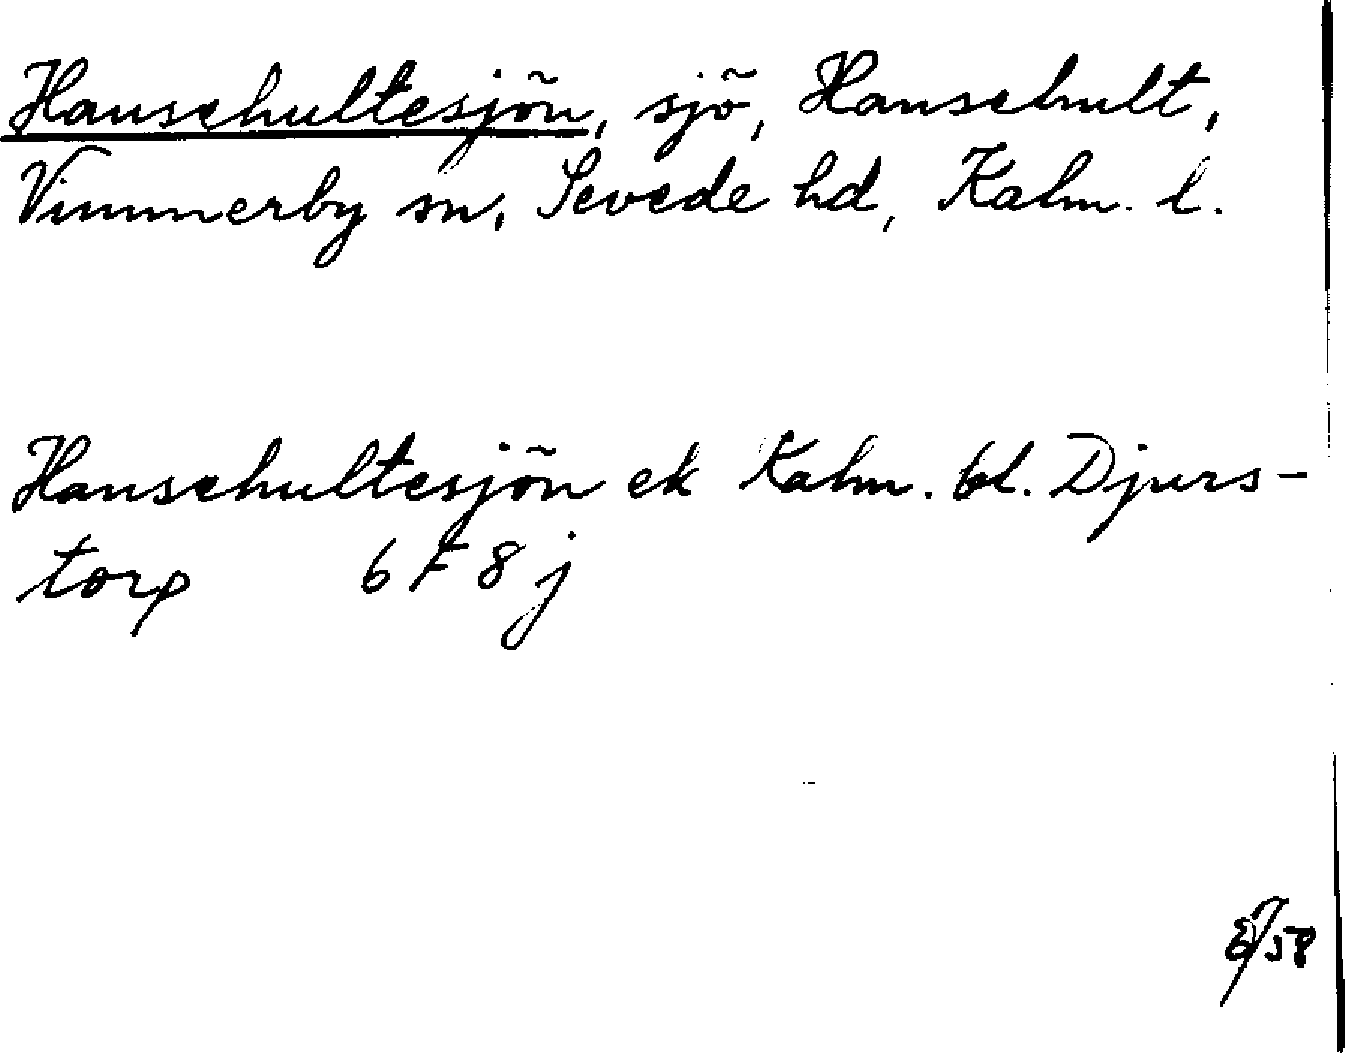 Hanschultesjön, sjö, Hanschult,
Vimmerby sn, Sevede hd, Kalm. l.
Hanschultesjön ek Kalm. bl. Djurs-
torp 6 F 8 j
58